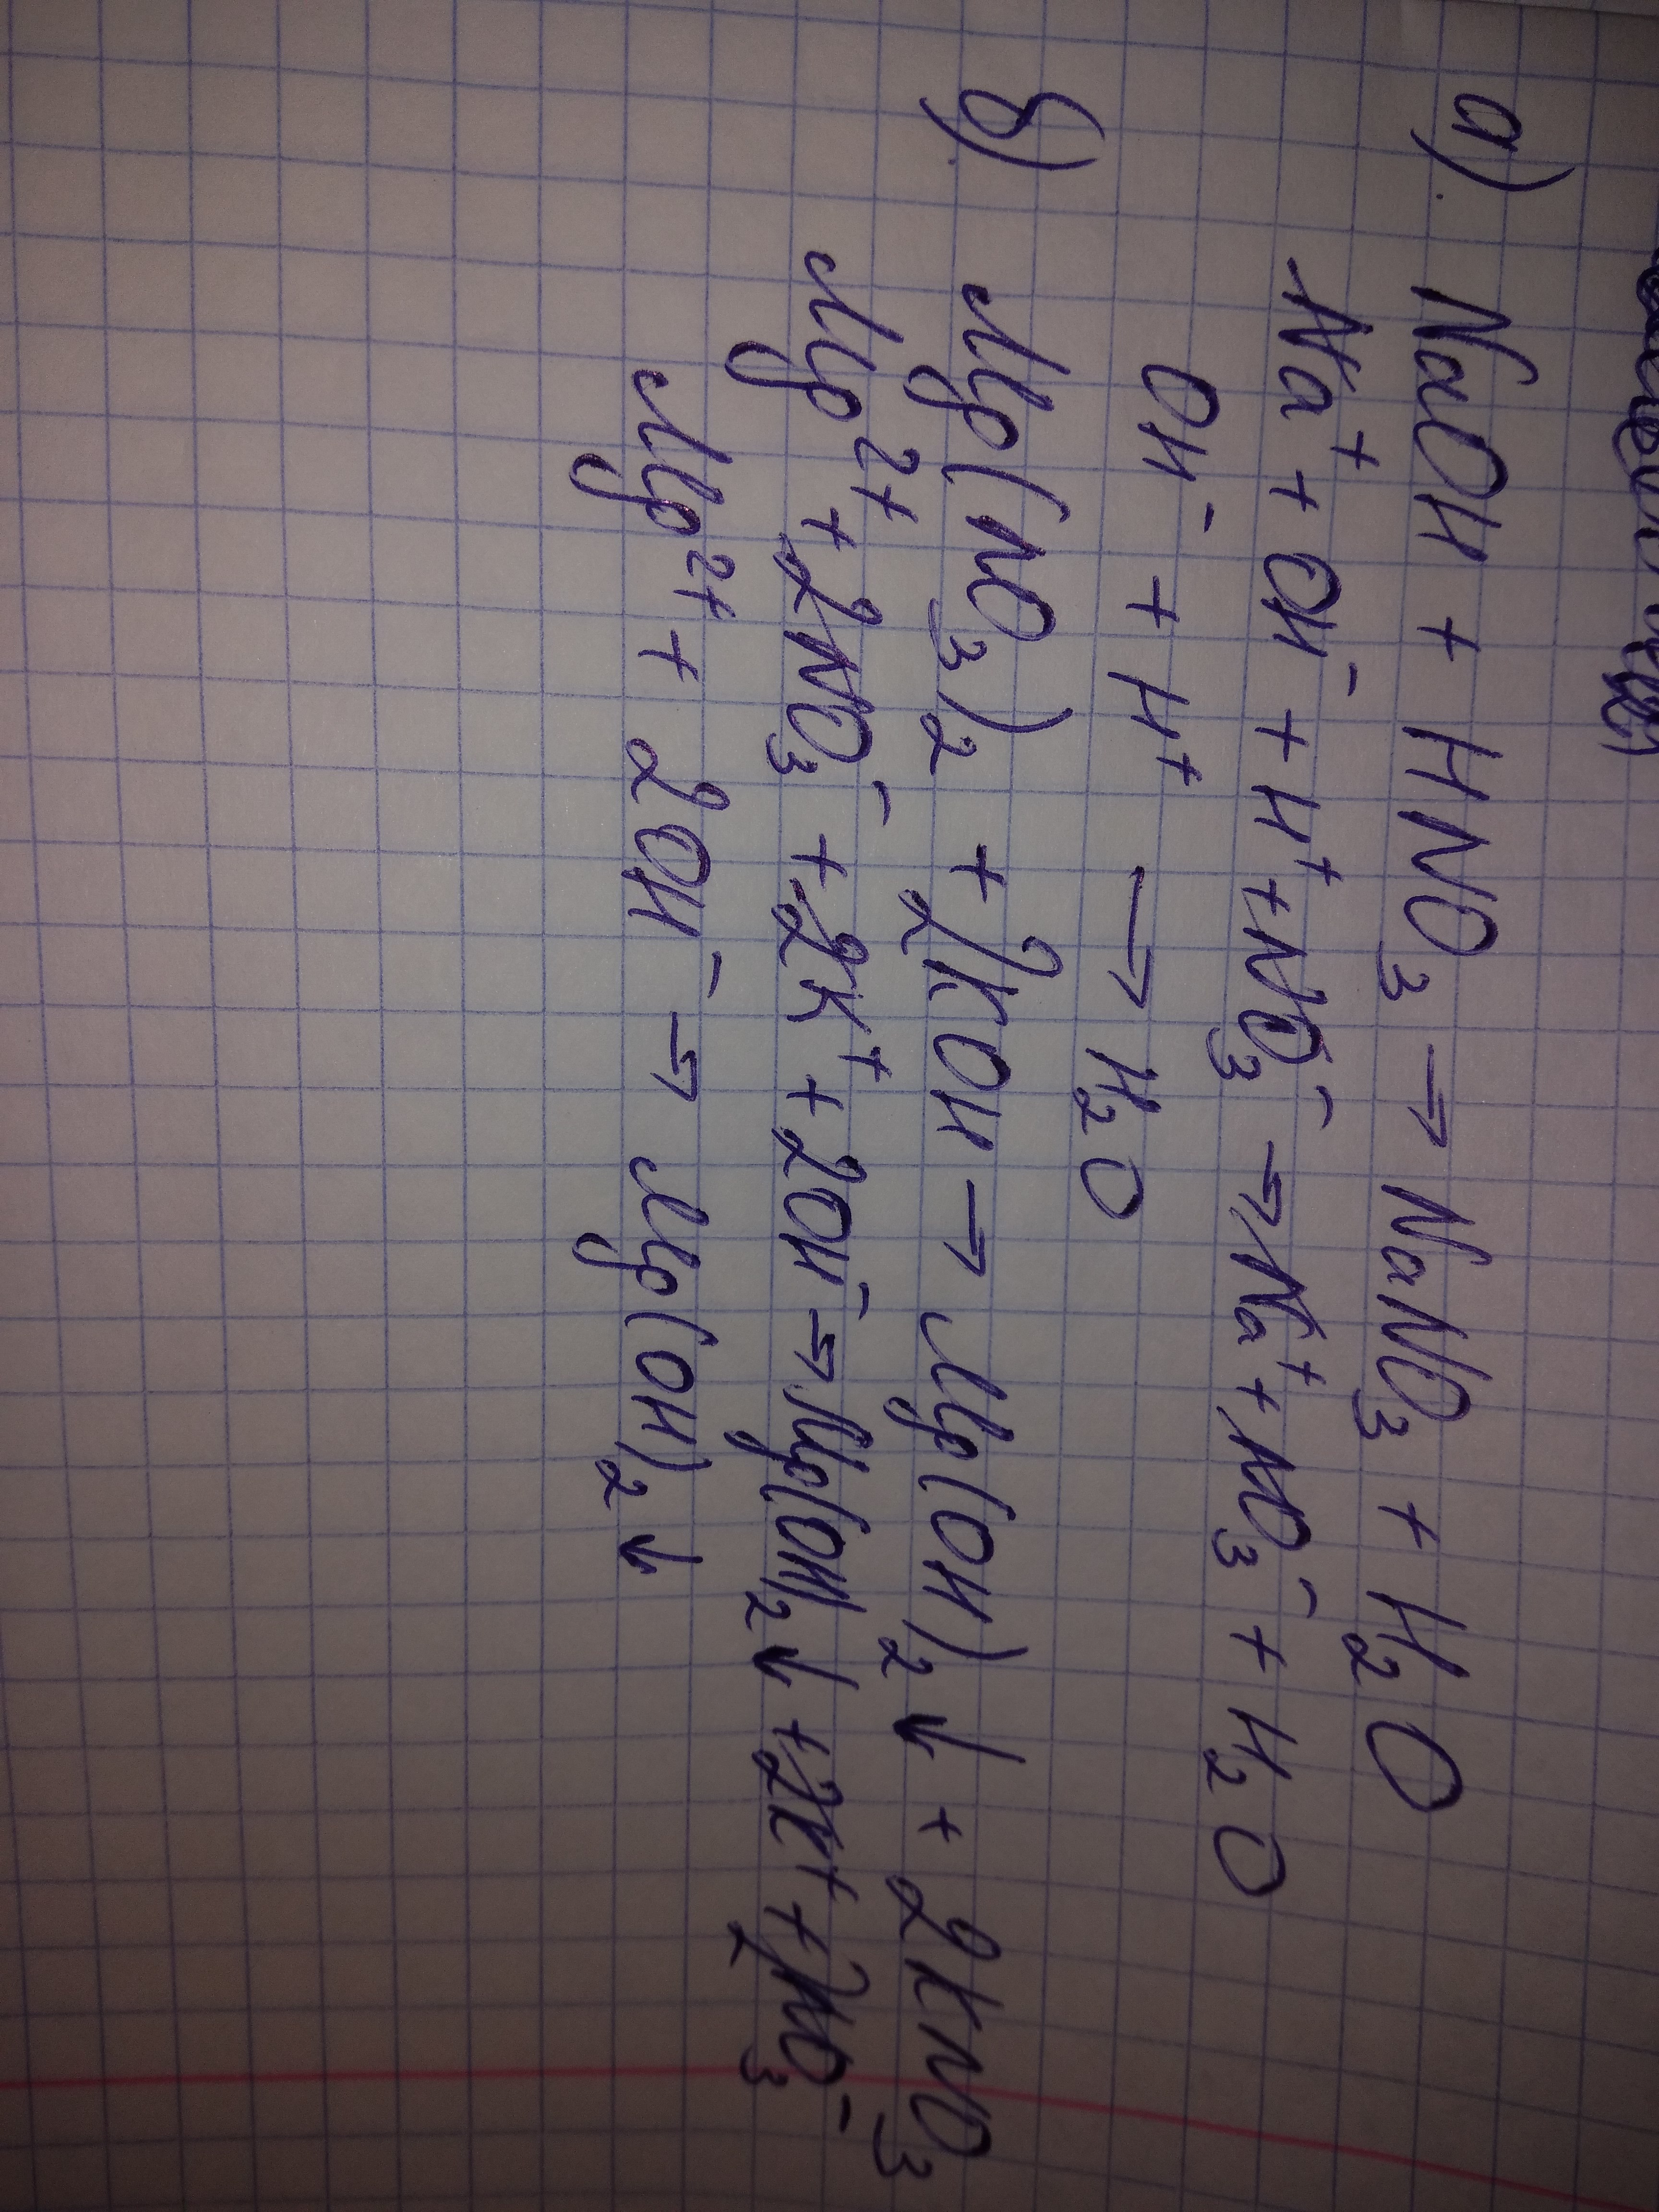 а) NaOH + HNO₃ → NaNO₃ + H₂O
Na⁺ + OH⁻ + H⁺ + NO₃⁻ → Na⁺ + NO₃⁻ + H₂O
OH⁻ + H⁺ → H₂O
б) Mg(NO₃)₂ + 2KOH → Mg(OH)₂↓ + 2KNO₃
Mg²⁺ + 2NO₃⁻ + 2K⁺ + 2OH⁻ → Mg(OH)₂↓ + 2K⁺ + 2NO₃⁻
Mg²⁺ + 2OH⁻ → Mg(OH)₂↓